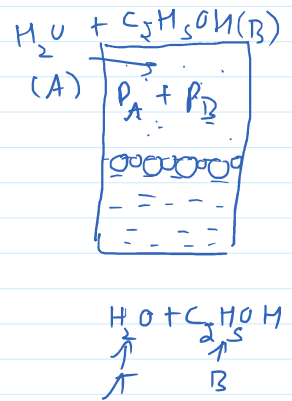 H₂O + C₂H₅OH(B)
(A)
P_A + P_B
H₂O + C₂H₅OH
B